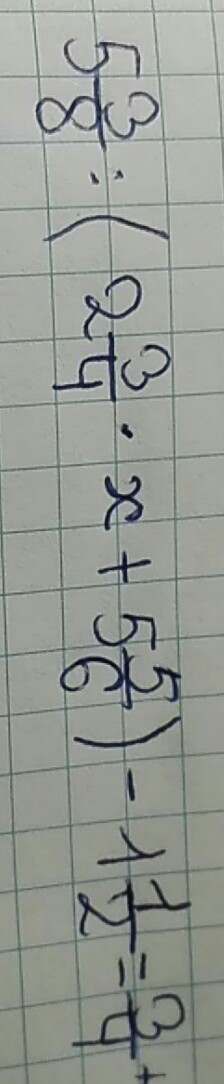 5 3/8 : ( 2 3/4 · x + 5 5/6 ) - 1 1/2 = 3/4